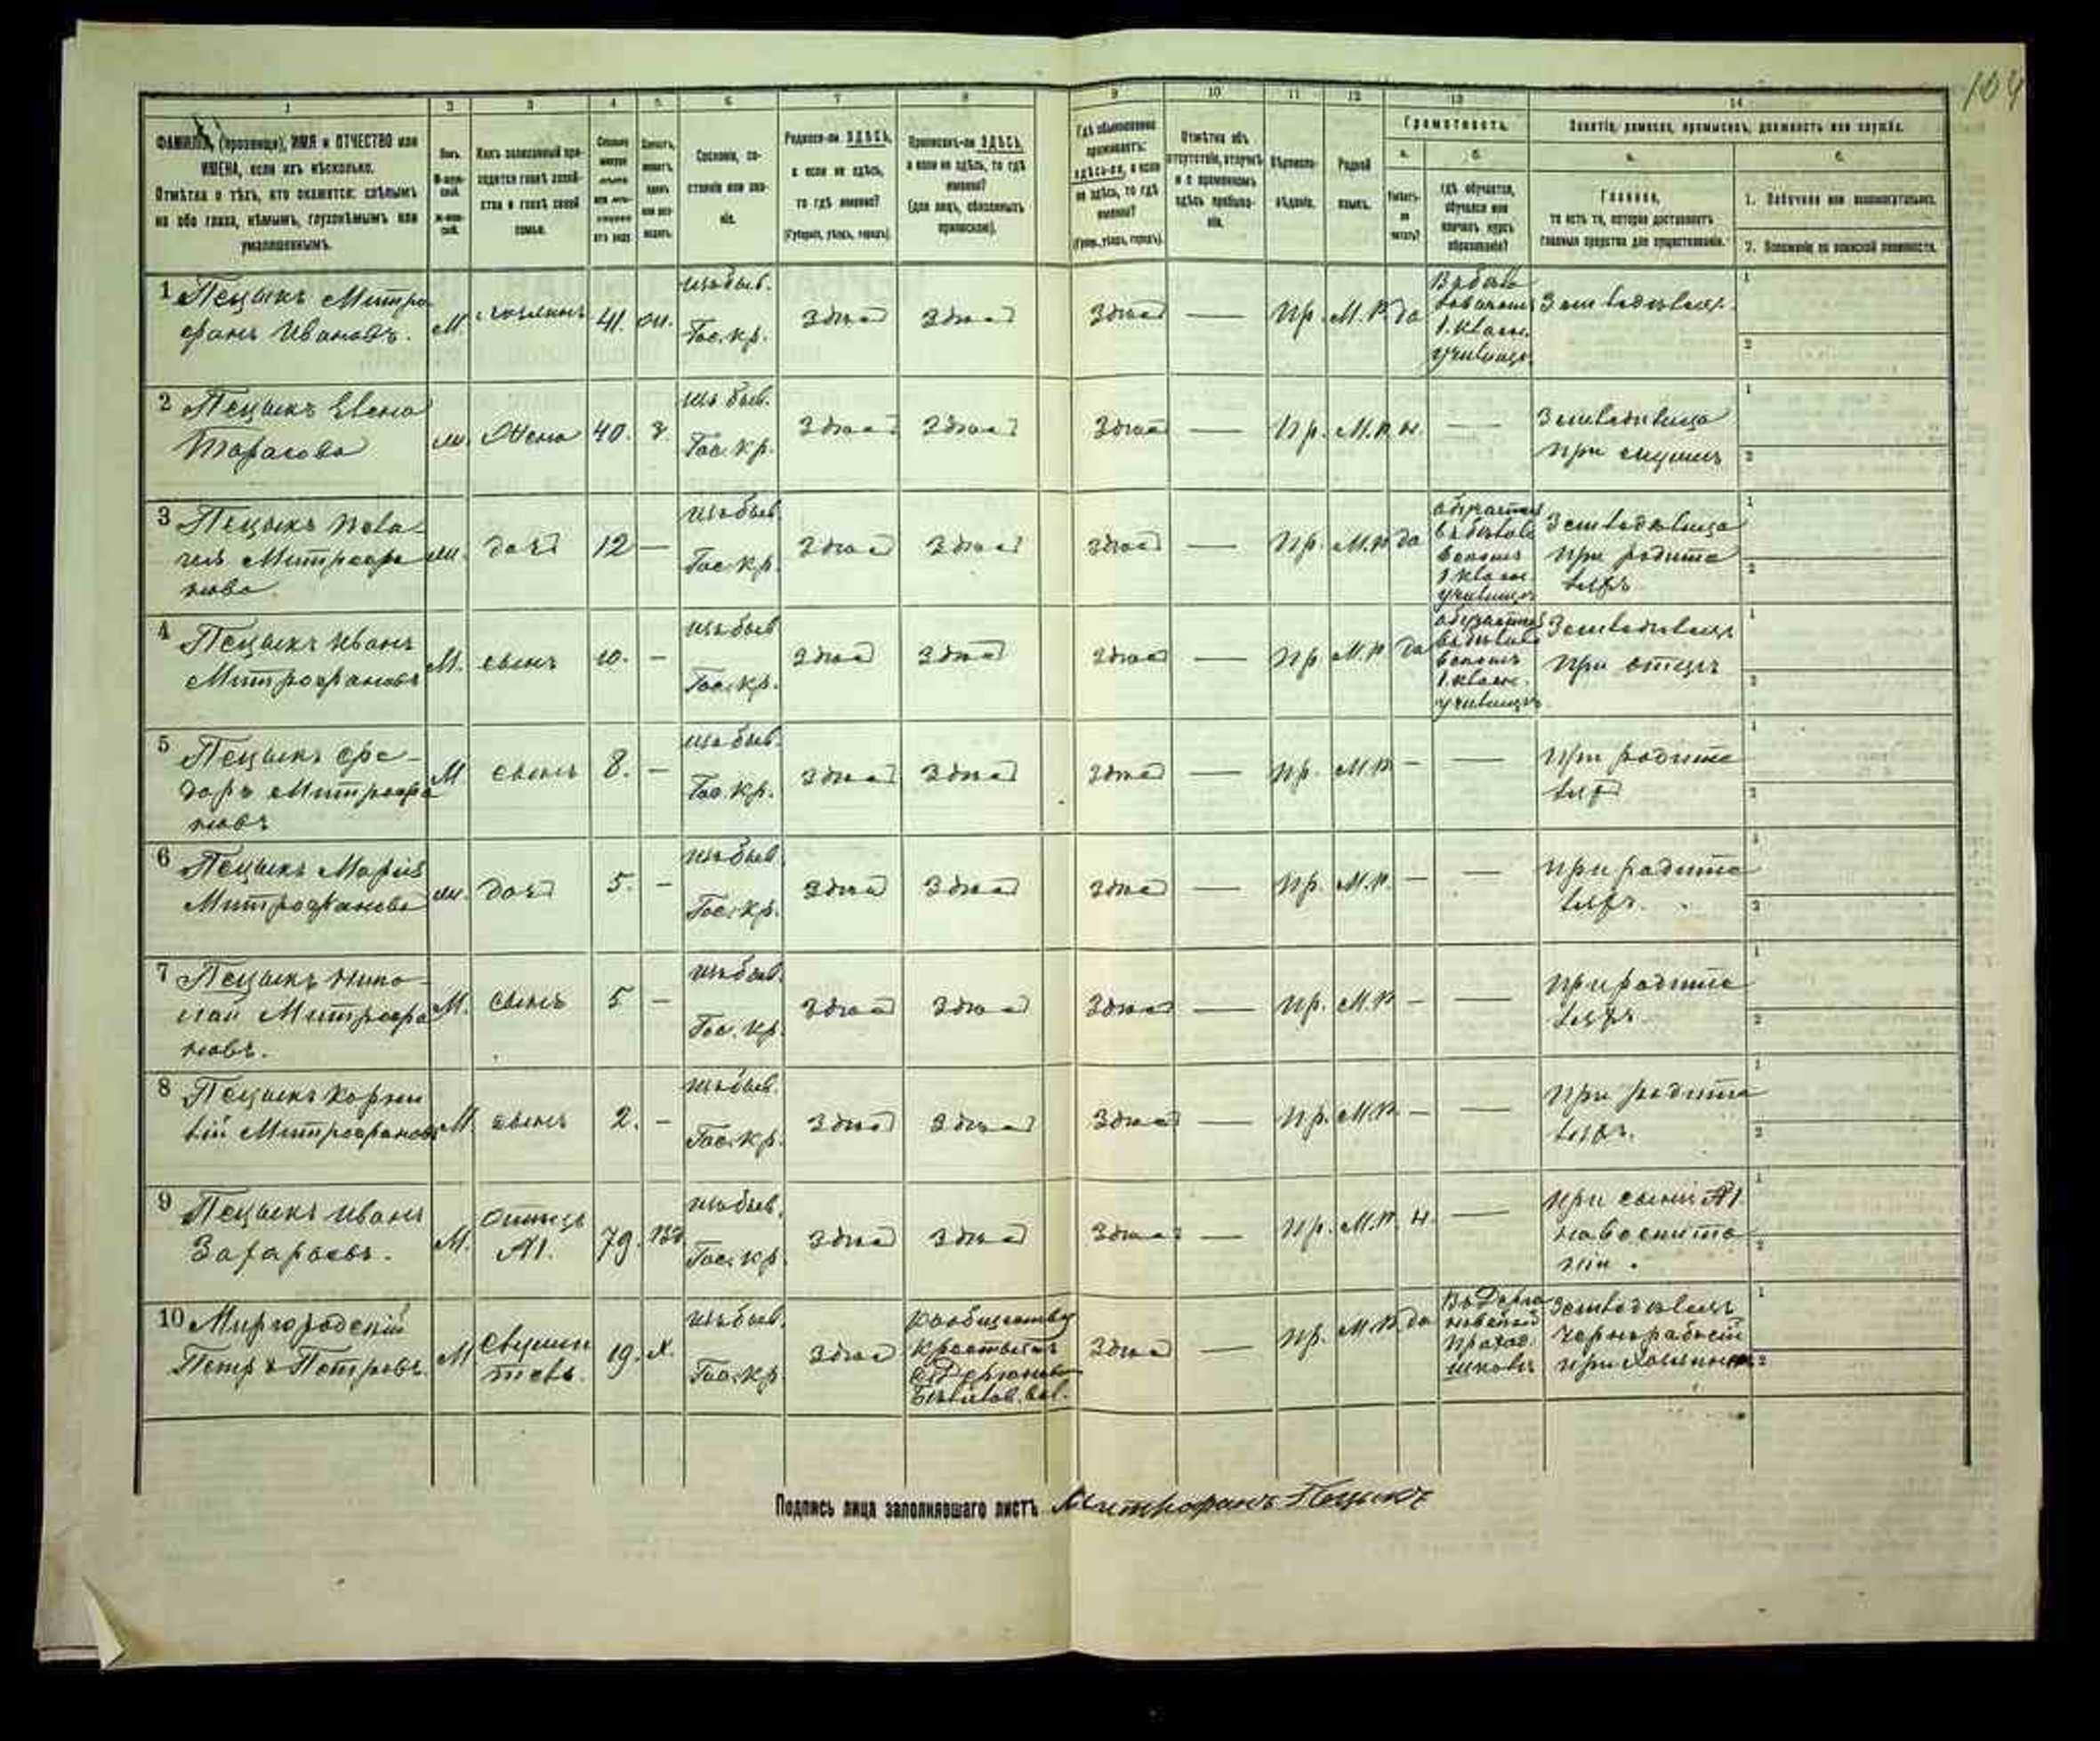 104
1 2 3 4 5 6 7 8 9 10 11 12 13 14
ФАМИЛІЯ, (прозвище), ИМЯ и ОТЧЕСТВО или ИМЕНА, если ихъ нѣсколько.
Отмѣтка о тѣхъ, кто окажется: слѣпымъ на оба глаза, нѣмымъ, глухонѣмымъ или умалишеннымъ.
Сословіе, состояніе или званіе.
Родился-ли ЗДѢСЬ, а если не здѣсь, то гдѣ именно?
(Губернія, уѣздъ, городъ).
Приписанъ-ли ЗДѢСЬ, а если не здѣсь, то гдѣ именно?
(для лицъ, обязанныхъ припискою).
Гдѣ обыкновенно проживаетъ: здѣсь-ли, а если не здѣсь, то гдѣ именно?
(Губер., уѣздъ, городъ).
Отмѣтка объ отсутствіи, отлучкѣ и о временномъ здѣсь пребываніи.
Вѣроисповѣданіе.
Родной языкъ.
Грамотность.
а. Умѣетъ-ли читать?
б. гдѣ обучается, обучался или кончилъ курсъ образованія?
Занятіе, ремесло, промыселъ, должность или служба.
а. Главное,
то есть то, которое доставляетъ главныя средства для существованія.
б.
1. Побочное или вспомогательное.
2. Положеніе по воинской повинности.
1 Пецыкъ Митро
фанъ Ивановъ. М хозяинъ 41. изъ быв. Гос. кр. Здѣсь Здѣсь Здѣсь — Пр. М.Р. да 1. класс. училище Земледѣлецъ
2 Пецыкъ Елена
Тарасова Жена 40. з. изъ быв. Гос. кр. Здѣсь Здѣсь Здѣсь — Пр. М.Р. н. — Земледѣлица
при мужѣ
3 Пецыкъ Пела-
гея Митрофа
нова. дочь 12 — изъ быв. Гос. кр. Здѣсь Здѣсь Здѣсь — Пр. М.Р. да обучается 1 класс. училище Земледѣлица
при родите
ляхъ
4 Пецыкъ Иванъ
Митрофановъ М. сынъ 10. - изъ быв. Гос. кр. Здѣсь Здѣсь Здѣсь — Пр. М.Р. да обучается 1. класс. училище Земледѣлецъ
при отцѣ
5 Пецыкъ Фе-
доръ Митрофа
новъ М сынъ 8. - изъ быв. Гос. кр. Здѣсь Здѣсь Здѣсь — Пр. М.Р. - — при родите
ляхъ
6 Пецыкъ Марія
Митрофанова дочь 5. - изъ быв. Гос. кр. Здѣсь Здѣсь Здѣсь — Пр. М.Р. — — при родите
ляхъ.
7 Пецыкъ Нико-
лай Митрофа
новъ. М. сынъ 5 - изъ быв. Гос. кр. Здѣсь Здѣсь Здѣсь — Пр. М.Р. - — при родите
ляхъ.
8 Пецыкъ Корни
лій Митрофановъ М. сынъ 2. - изъ быв. Гос. кр. Здѣсь Здѣсь Здѣсь — Пр. М.Р. — — при родите
ляхъ.
9 Пецыкъ Иванъ
Захарьевъ. М. Отецъ 79. изъ быв. Гос. кр. Здѣсь Здѣсь Здѣсь — Пр. М.Р. н. — при сынѣ
на воспита
ніи.
10 Миргородскій
Петръ Петровъ. М 19. х. изъ быв. Гос. кр. Здѣсь Къ обществу
крестьянъ Здѣсь — Пр. М.Р. да Земледѣлецъ
чернорабочій
при хозяинѣ
Подпись лица заполнявшаго листъ Митрофанъ Пецыкъ